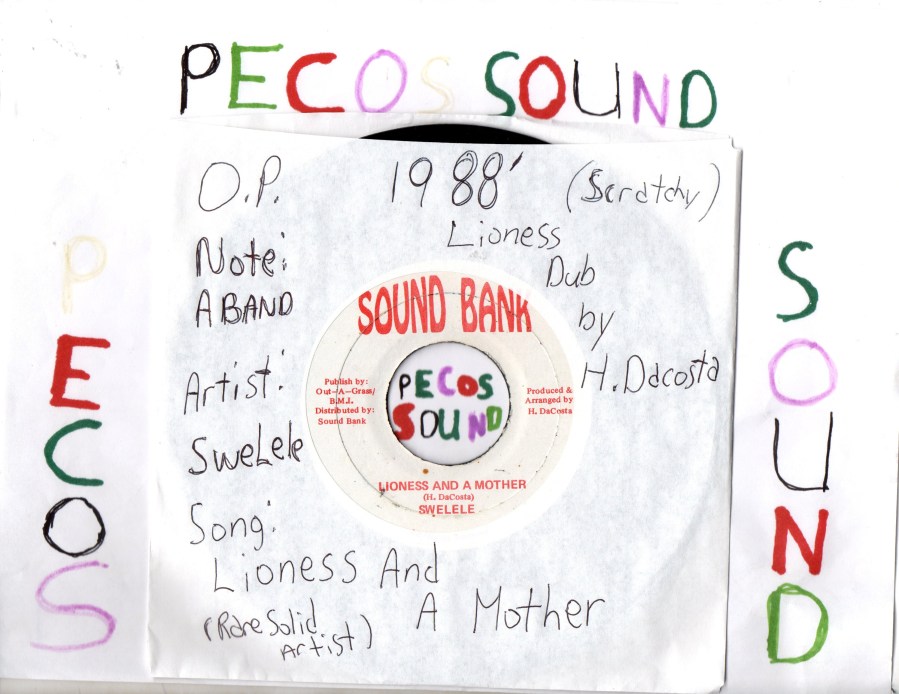 PECOS SOUND
O.P. 1988' (Scratchy)
Note: Lioness
A BAND Dub
by
H. Dacosta
Artist:
SweLele
Song:
Lioness And
A Mother
(Rare Solid
Artist)
SOUND BANK
Publish by:
Out-A-Grass/
B.M.I.
Distributed by:
Sound Bank
Produced &
Arranged by
H. DaCosta
PECOS
SOUND
LIONESS AND A MOTHER
(H. DaCosta)
SWELELE
PECOS
SOUND